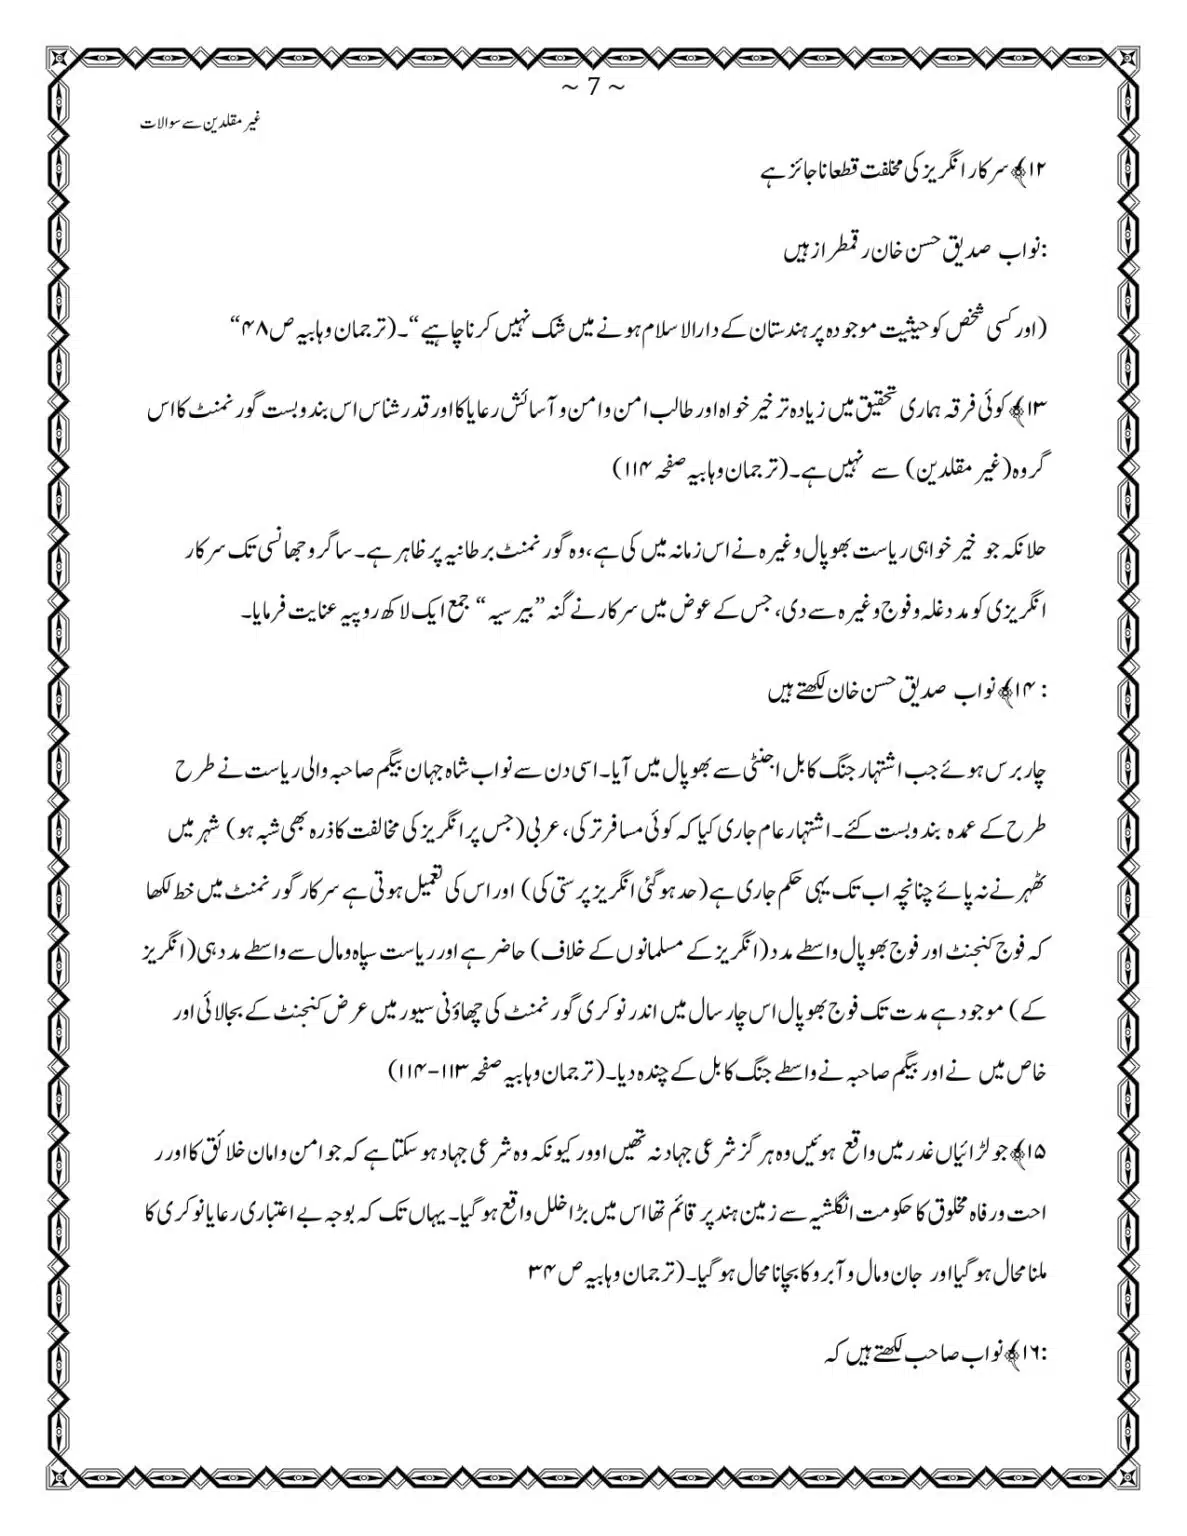 ~ 7 ~
غیر مقلدین سے سوالات
۱۲﴾ سرکار انگریز کی مخلفت قطعا ناجائز ہے
:نواب صدیق حسن خان رقمطراز ہیں
(اور کسی شخص کو حیثیت موجودہ پر ہندستان کے دارالاسلام ہونے میں شک نہیں کرنا چاہیے“۔(ترجمان وہابیہ ص۴۸“
۱۳﴾ کوئی فرقہ ہماری تحقیق میں زیادہ تر خیر خواہ اور طالب امن وامن و آسائش رعایا کا اور قدر شناس اس بندوبست گورنمنٹ کا اس
گروہ(غیر مقلدین) سے نہیں ہے۔(ترجمان وہابیہ صفحہ ۱۱۴)
حلانکہ جو خیر خواہی ریاست بھوپال وغیرہ نے اس زمانہ میں کی ہے،وہ گورنمنٹ برطانیہ پر ظاہر ہے۔ ساگر وجھانسی تک سرکار
انگریزی کو مدد غلہ وفوج وغیرہ سے دی، جس کے عوض میں سرکار نے گنہ ”بیرسیہ“ جمع ایک لاکھ روپیہ عنایت فرمایا۔
: ۱۴﴾ نواب صدیق حسن خان لکھتے ہیں
چار برس ہوئے جب اشتہار جنگ کابل اجنٹی سے بھوپال میں آیا۔ اسی دن سے نواب شاہ جہان بیگم صاحبہ والی ریاست نے طرح
طرح کے عمدہ بندوبست کئے۔ اشتہار عام جاری کیا کہ کوئی مسافر ترکی، عربی(جس پر انگریز کی مخالفت کا ذرہ بھی شبہ ہو) شہر میں
ٹھہرنے نہ پائے چنانچہ اب تک یہی حکم جاری ہے(حد ہوگئی انگریز پرستی کی) اور اس کی تعمیل ہوتی ہے سرکار گورنمنٹ میں خط لکھا
کہ فوج کنجنٹ اور فوج بھوپال واسطے مدد(انگریز کے مسلمانوں کے خلاف) حاضر ہے اور ریاست سپاہ ومال سے واسطے مدد ہی(انگریز
کے) موجود ہے مدت تک فوج بھوپال اس چار سال میں اندر نوکری گورنمنٹ کی چھاؤنی سیور میں عرض کنجنٹ کے بجالائی اور
خاص میں نے اور بیگم صاحبہ نے واسطے جنگ کابل کے چندہ دیا۔(ترجمان وہابیہ صفحہ ۱۱۳-۱۱۴)
۱۵﴾ جو لڑائیاں غدر میں واقع ہوئیں وہ ہرگز شرعی جہاد نہ تھیں اوور کیونکہ وہ شرعی جہاد ہوسکتا ہے کہ جو امن وامان خلائق کا اور ر
احت ورفاہ مخلوق کا حکومت انگلشیہ سے زمین ہند پر قائم تھا اس میں بڑا خلل واقع ہوگیا۔ یہاں تک کہ بوجہ بے اعتباری رعایا نوکری کا
ملنا محال ہوگیا اور جان ومال و آبرو کا بچانا محال ہوگیا۔(ترجمان وہابیہ ص ۳۴
:۱۶﴾ نواب صاحب لکھتے ہیں کہ